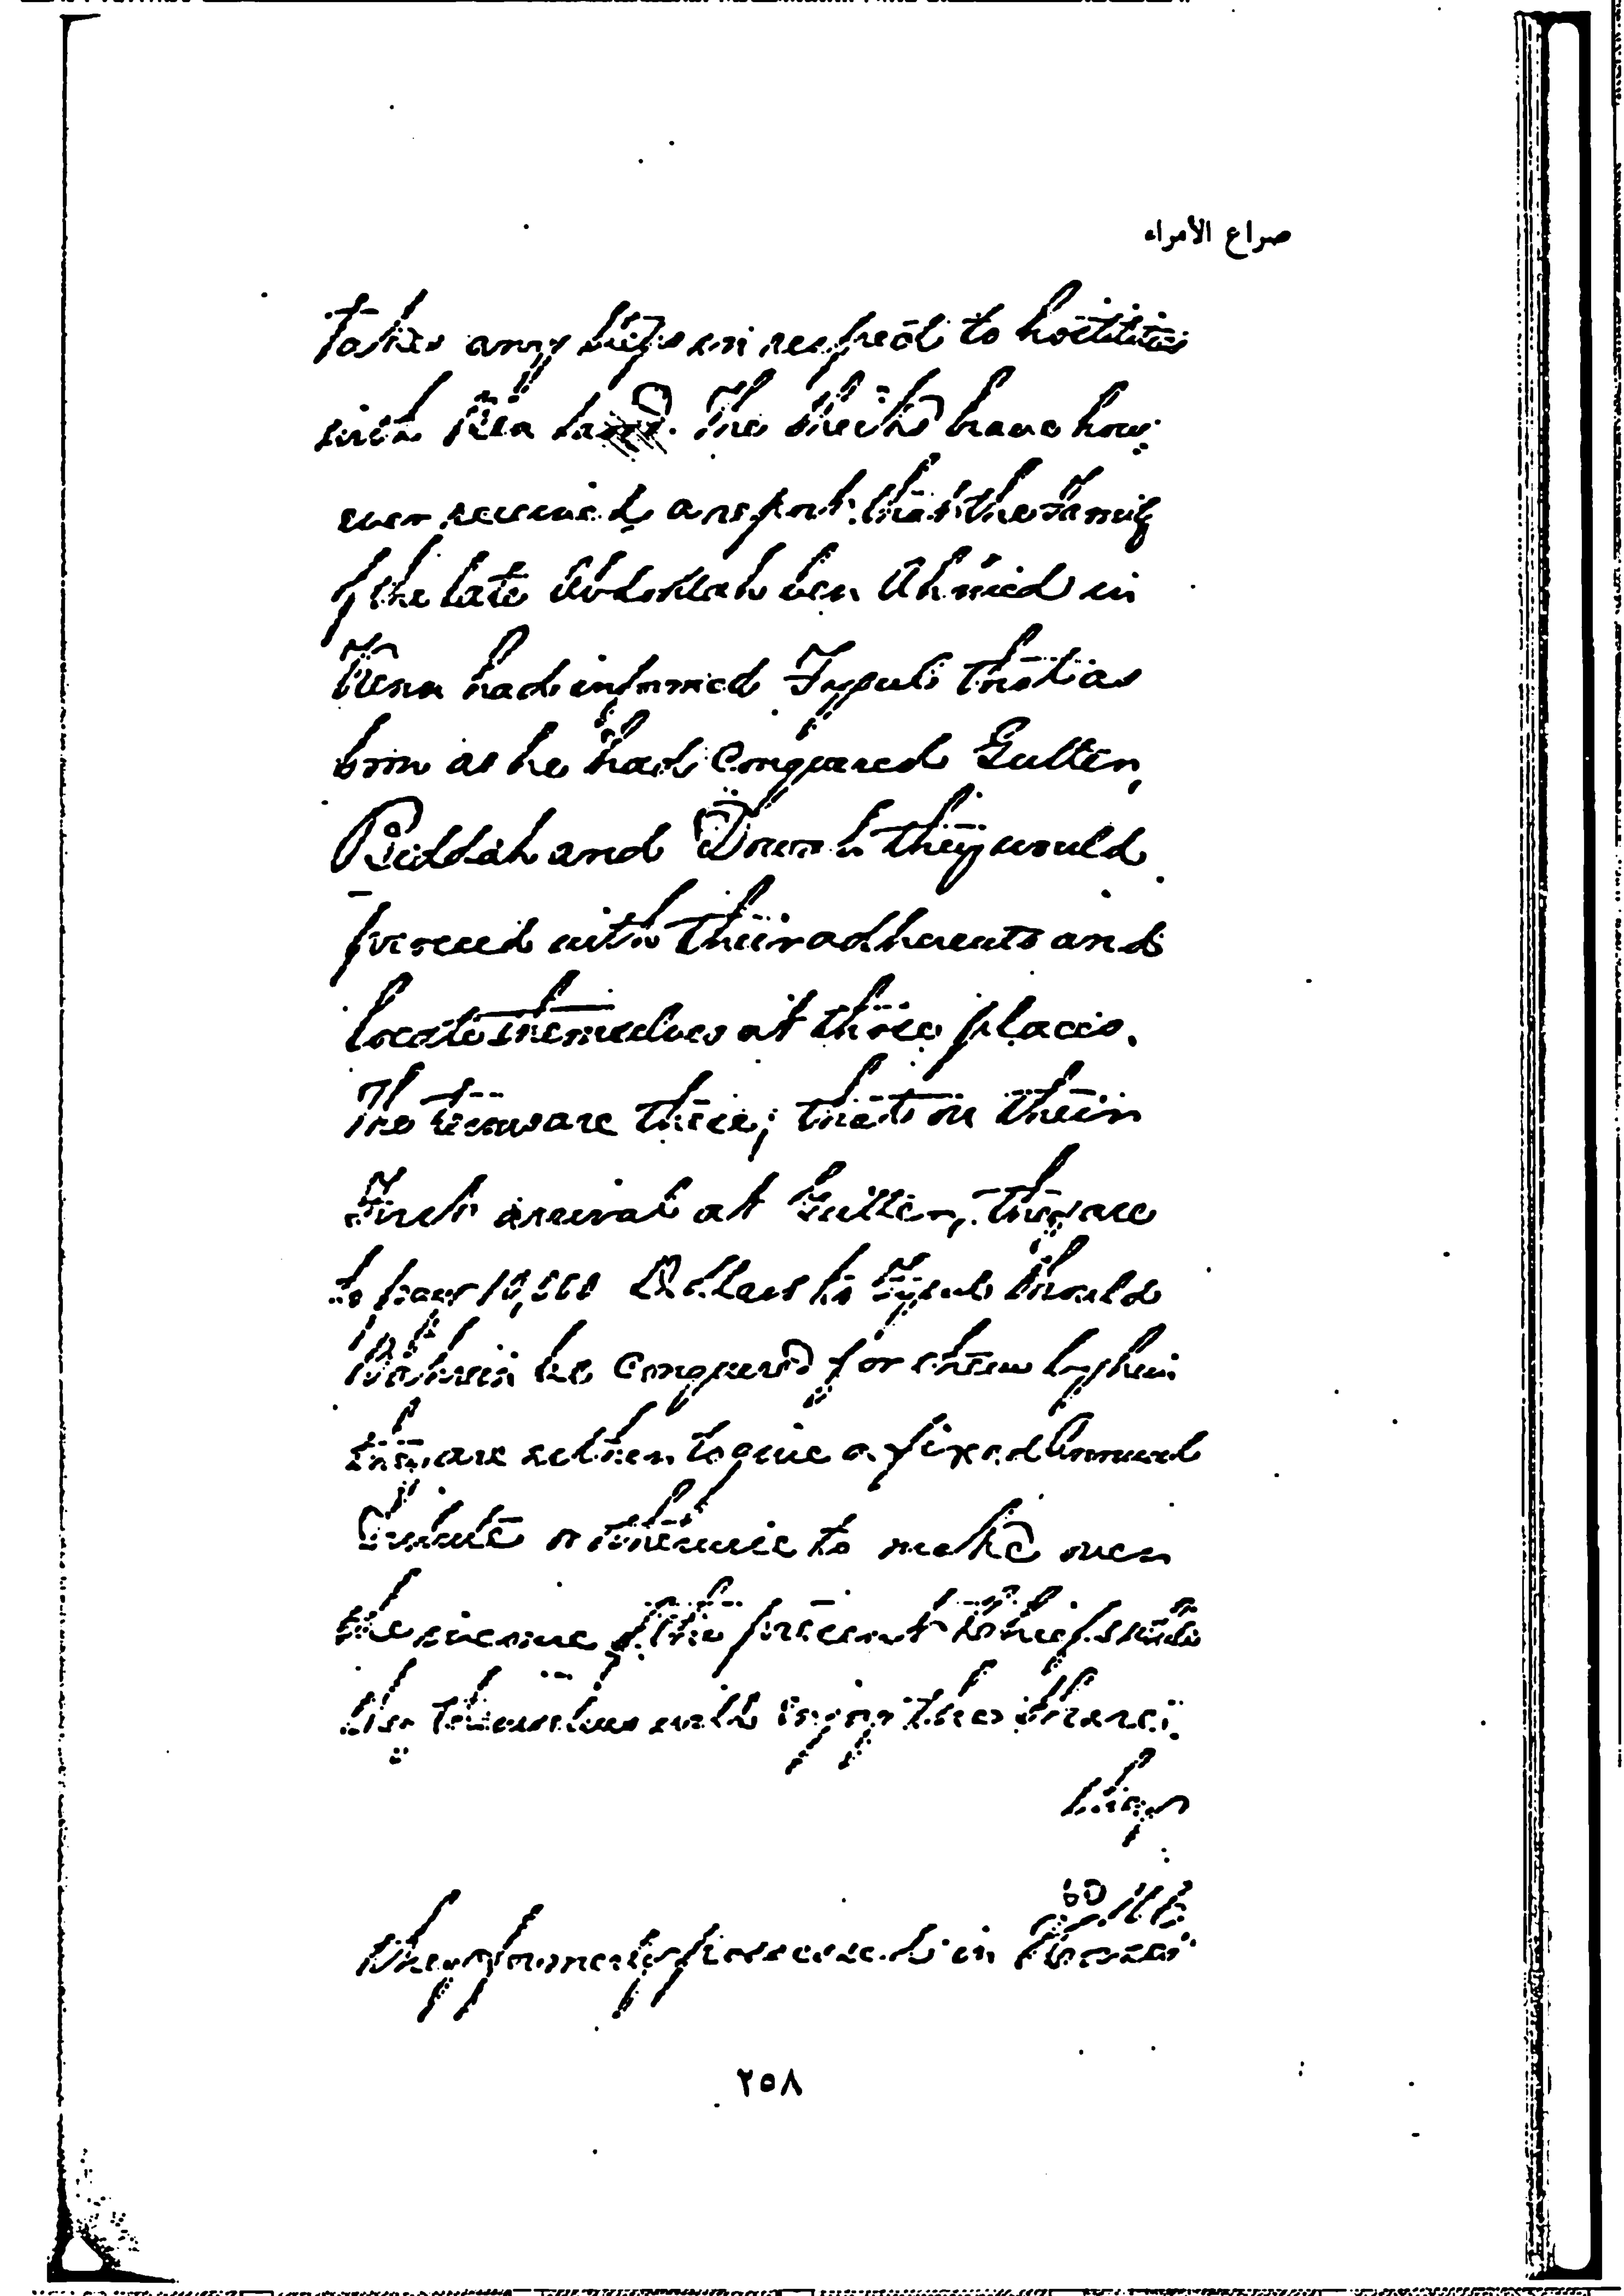 صراع الأمراء
taken any steps in respect to hostilities
with them. The Sheikhs have how
ever received a report that the Family
of the late Abdollah ben Ahmed in
had informed Fysul that as
soon as he had conquered Gutter,
Biddah and they would
proceed with their adherents and
locate themselves at those places.
The terms are these; that on their
First arrival at Gutter, they are
to pay 10,000 Dollars to Fysul Should
Bahrein be conquered for them by him
they are either to give a fixed Annual
Tribute or otherwise to make over
the revenue of the present Chief while
they themselves will enjoy the share
they
60
they formerly possessed in
٢٥٨